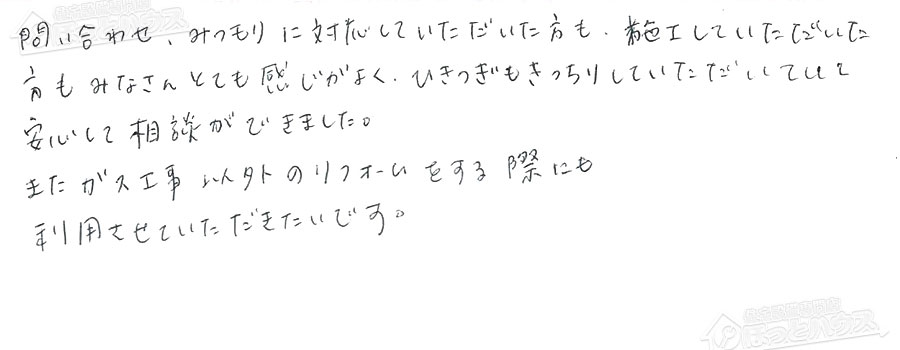 問い合わせ、みつもりに対応していただいた方も、施工していただいた
方もみなさんとても感じがよく、ひきつぎもきっちりしていただいていて
安心して相談ができました。
またガス工事以外のリフォームをする際にも
利用させていただきたいです。
住宅設備専門店
ほっとハウス